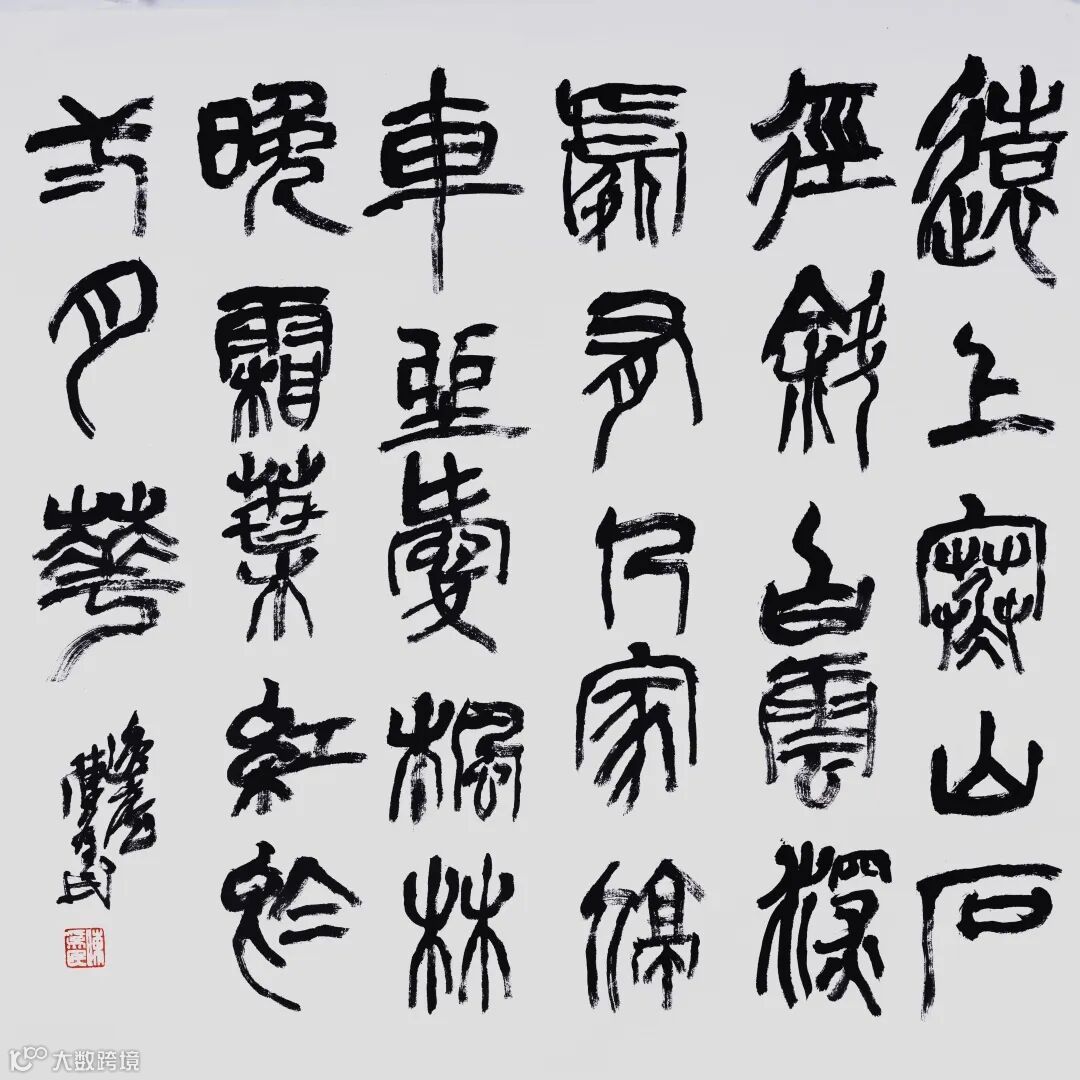 遠上寒山石
徑斜白雲深
處有人家停
車坐愛楓林
晚霜葉紅於
弍月華
大数跨境